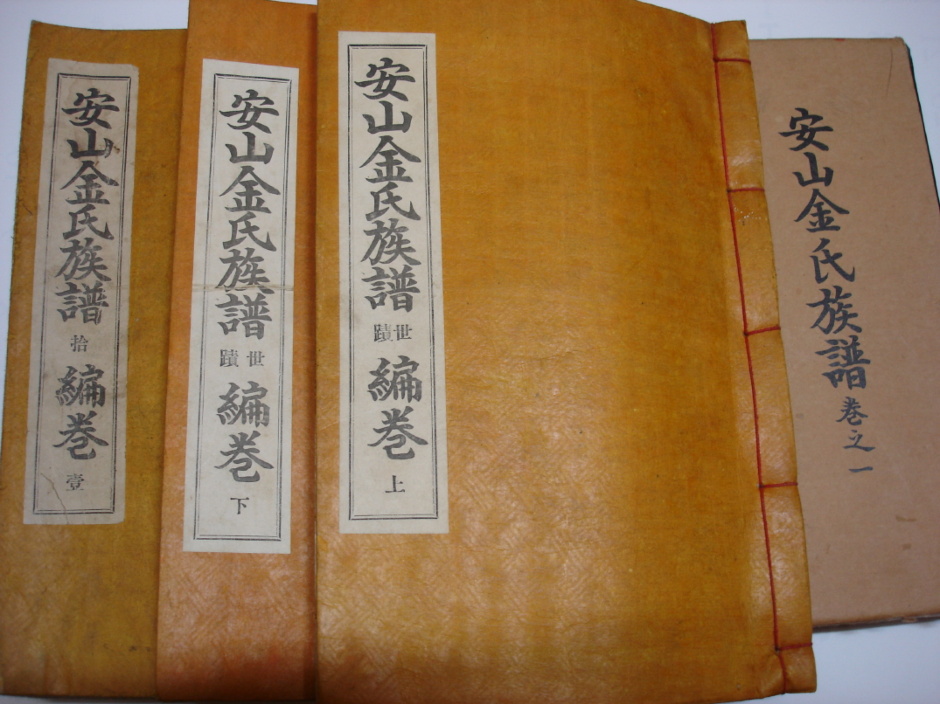 安山金氏族譜 拾 編巻 壹
安山金氏族譜 世蹟 編巻 下
安山金氏族譜 世蹟 編巻 上
安山金氏族譜 巻之一